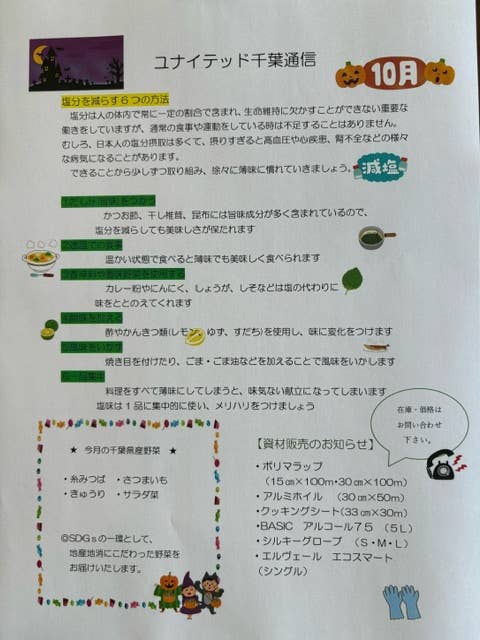 ユナイテッド千葉通信
10月
塩分を減らす6つの方法
塩分は人の体内で常に一定の割合で含まれ、生命維持に欠かすことができない重要な
働きをしていますが、通常の食事や運動をしている時は不足することはありません。
むしろ、日本人の塩分摂取は多くて、摂りすぎると高血圧や心疾患、腎不全などの様々
な病気になることがあります。
できることから少しずつ取り組み、徐々に薄味に慣れていきましょう。
減塩
かつお節、干し椎茸、昆布には旨味成分が多く含まれているので、
塩分を減らしても美味しさが保たれます
②適温での食事
温かい状態で食べると薄味でも美味しく食べられます
③香辛料や香味野菜を使用する
カレー粉やにんにく、しょうが、しそなどは塩の代わりに
味をととのえてくれます
④酸味を加える
酢やかんきつ類(レモン、ゆず、すだち)を使用し、味に変化をつけます
⑤風味をいかす
焼き目を付けたり、ごま・ごま油などを加えることで風味をいかします
⑥一品集中
料理をすべて薄味にしてしまうと、味気ない献立になってしまいます
塩味は1品に集中的に使い、メリハリをつけましょう
★ 今月の千葉県産野菜 ★
・糸みつば ・さつまいも
・きゅうり ・サラダ菜
◎SDGsの一環として、
地産地消にこだわった野菜を
お届けいたします。
在庫・価格は
お問い合わせ
下さい。
【資材販売のお知らせ】
・ポリマラップ
(15㎝×100m・30㎝×100m)
・アルミホイル (30㎝×50m)
・クッキングシート(33㎝×30m)
・BASIC アルコール75 (5L)
・シルキーグローブ (S・M・L)
・エルヴェール エコスマート
(シングル)